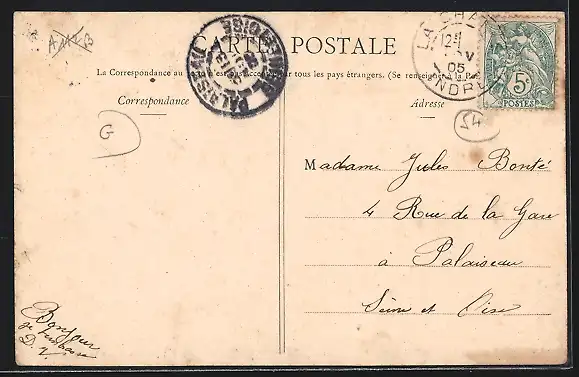 CARTE POSTALE
La Correspondance au recto n'est pas acceptée par tous les pays étrangers. (Se renseigner à la Poste)
Correspondance
Adresse
G
54
LA CHA
12
05
INDRE
5c
POSTES
PALAISEAU
SEINE-ET-OISE
Madame Jules Bonté
4 Rue de la Gare
à Palaiseau
Seine et Oise
Bonjour
D. V.